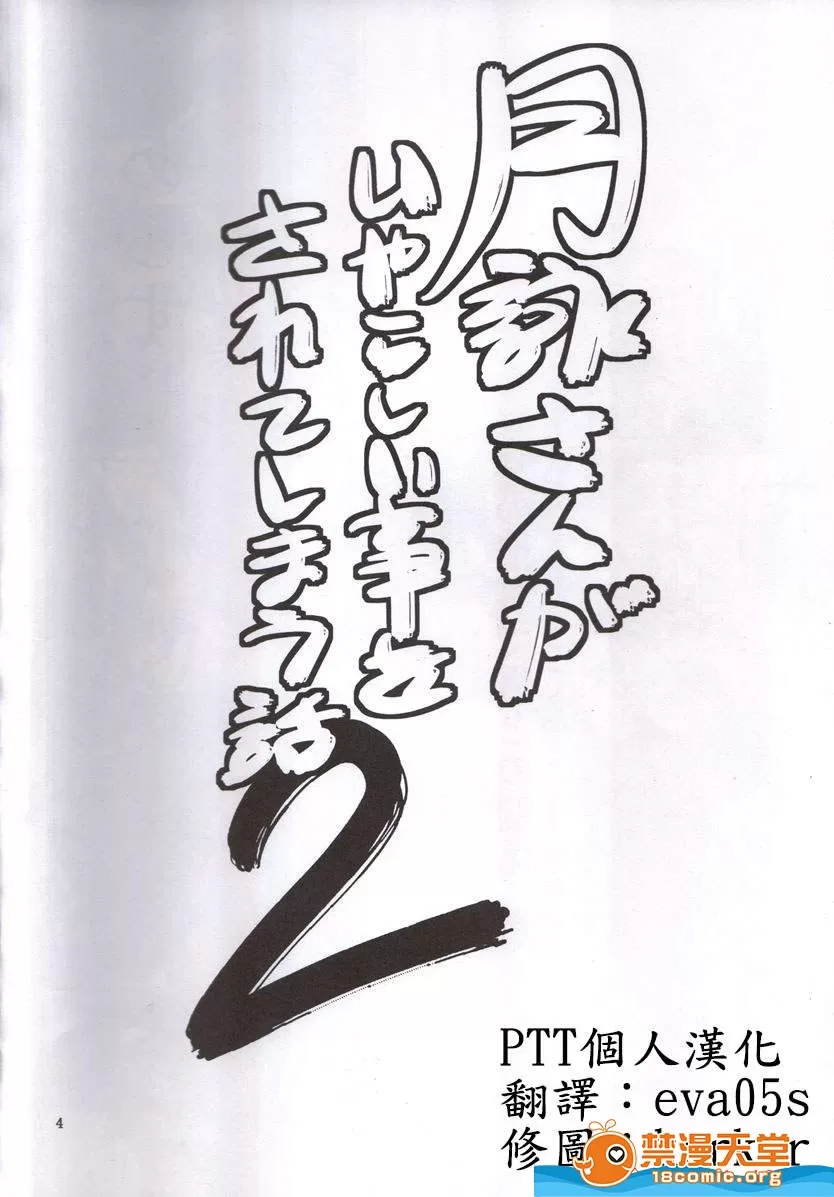 月詠さんが
いやらしい事を
されてしまう話
2
PTT個人漢化
翻譯：eva05s
修圖
禁漫天堂
18comic.org
4